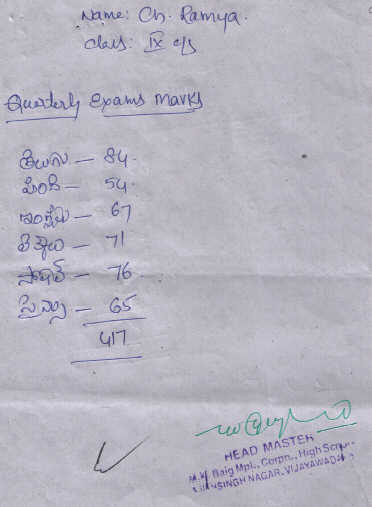 Name: Ch. Ramya.
class: IX c/s
Quarterly Exams Marks
తెలుగు - 84.
హింది - 54.
ఇంగ్లీషు - 67
లెక్కలు - 71
సోషల్ - 76
సైన్సు - 65
417
HEAD MASTER
Baig Mpl., Corpn., High
SINGH NAGAR, VIJAYAWADA